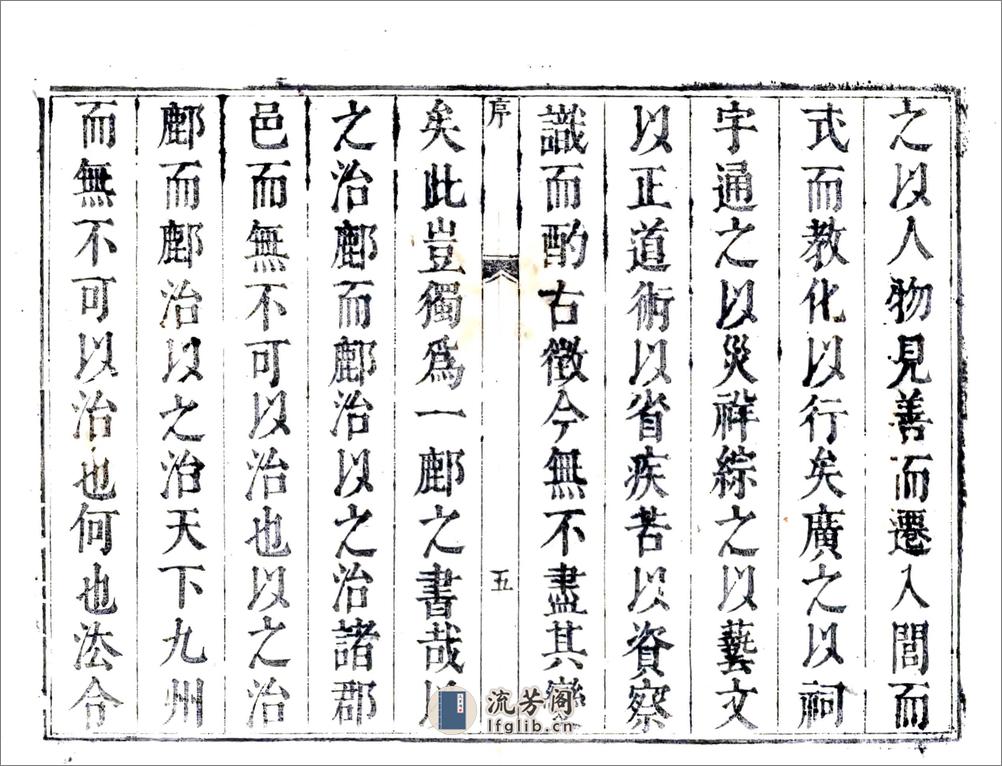 之以人物見善而遷入閭而
式而教化以行矣廣之以祠
字通之以災祥綜之以藝文
以正道術以省疾苦以資察
識而酌古徵今無不盡其變
序
五
矣此豈獨爲一鄜之書哉以
之治鄜而鄜治以之治諸郡
邑而無不可以治也以之治
鄜而鄜治以之治天下九州
而無不可以治也何也法令
流芳阁
lfglib.cn